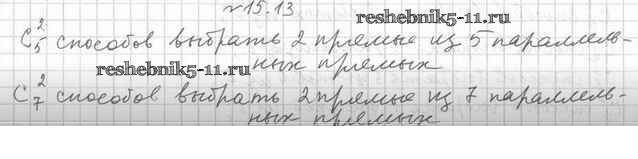 №15.13
reshebnik5-11.ru
C₅² способов выбрать 2 прямые из 5 параллель-
ных прямых
reshebnik5-11.ru
C₇² способов выбрать 2 прямые из 7 параллель-
ных прямых